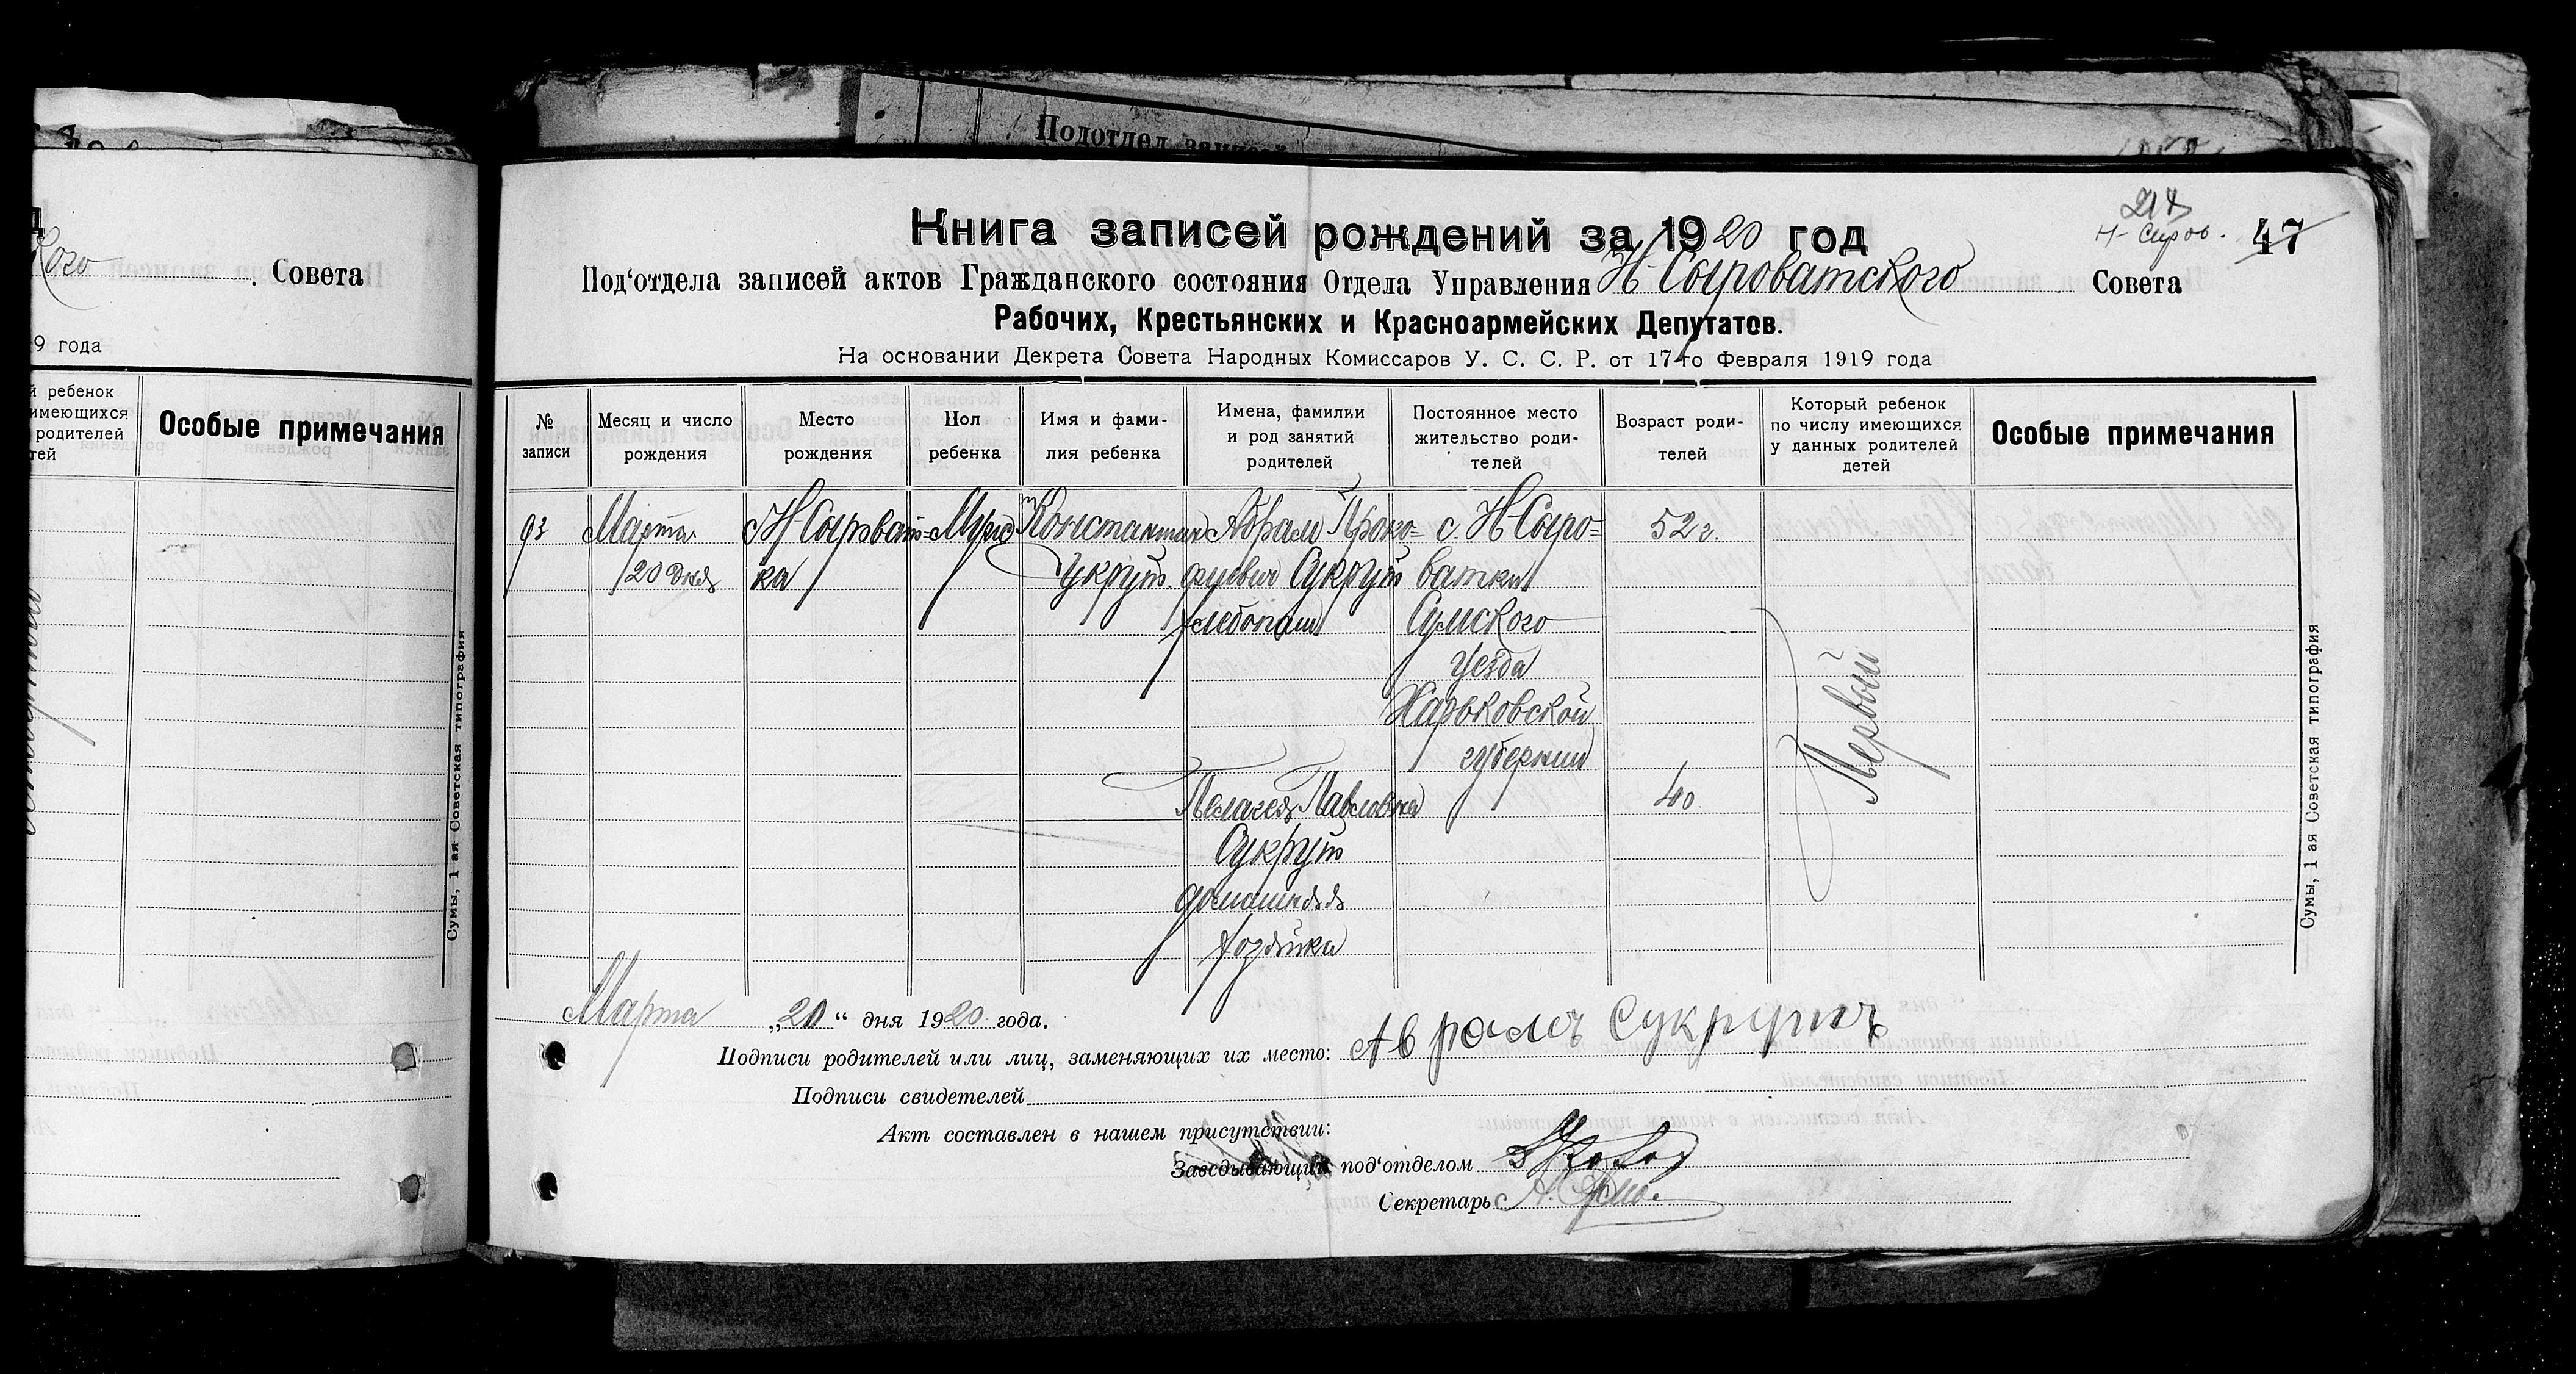 Подотдел записей
кого Совета
9 года
й ребенок
имеющихся
родителей
тей
Особые примечания
Сумы, 1 ая Советская типография
Н-Сиров. 47
Книга записей рождений за 1920 год
Под‘отдела записей актов Гражданского состояния Отдела Управления Н-Сыроватского Совета
Рабочих, Крестьянских и Красноармейских Депутатов.
На основании Декрета Совета Народных Комиссаров У. С. С. Р. от 17-го Февраля 1919 года
№ записи
Месяц и число рождения
Место рождения
Пол ребенка
Имя и фамилия ребенка
Имена, фамилии и род занятий родителей
Постоянное место жительство родителей
Возраст родителей
Который ребенок по числу имеющихся у данных родителей детей
Особые примечания
93 Марта с. Н-Сыроват= Муж. Константин Абрам Проко= с. Н-Сыро= 52 г.
20 дня ка Сукрут фиевич Сукрут ватки
хлебопаш. Сумского
уезда
Харьковской
губернии
Первый
Пелагея Павловна 40
Сукрут
домашняя
хозяйка
Марта „20“ дня 1920 года.
Подписи родителей или лиц, заменяющих их место: Аврамъ Сукрутъ
Подписи свидетелей
Акт составлен в нашем присутствии:
Заведывающий под‘отделом
Секретарь
Сумы, 1 ая Советская типография